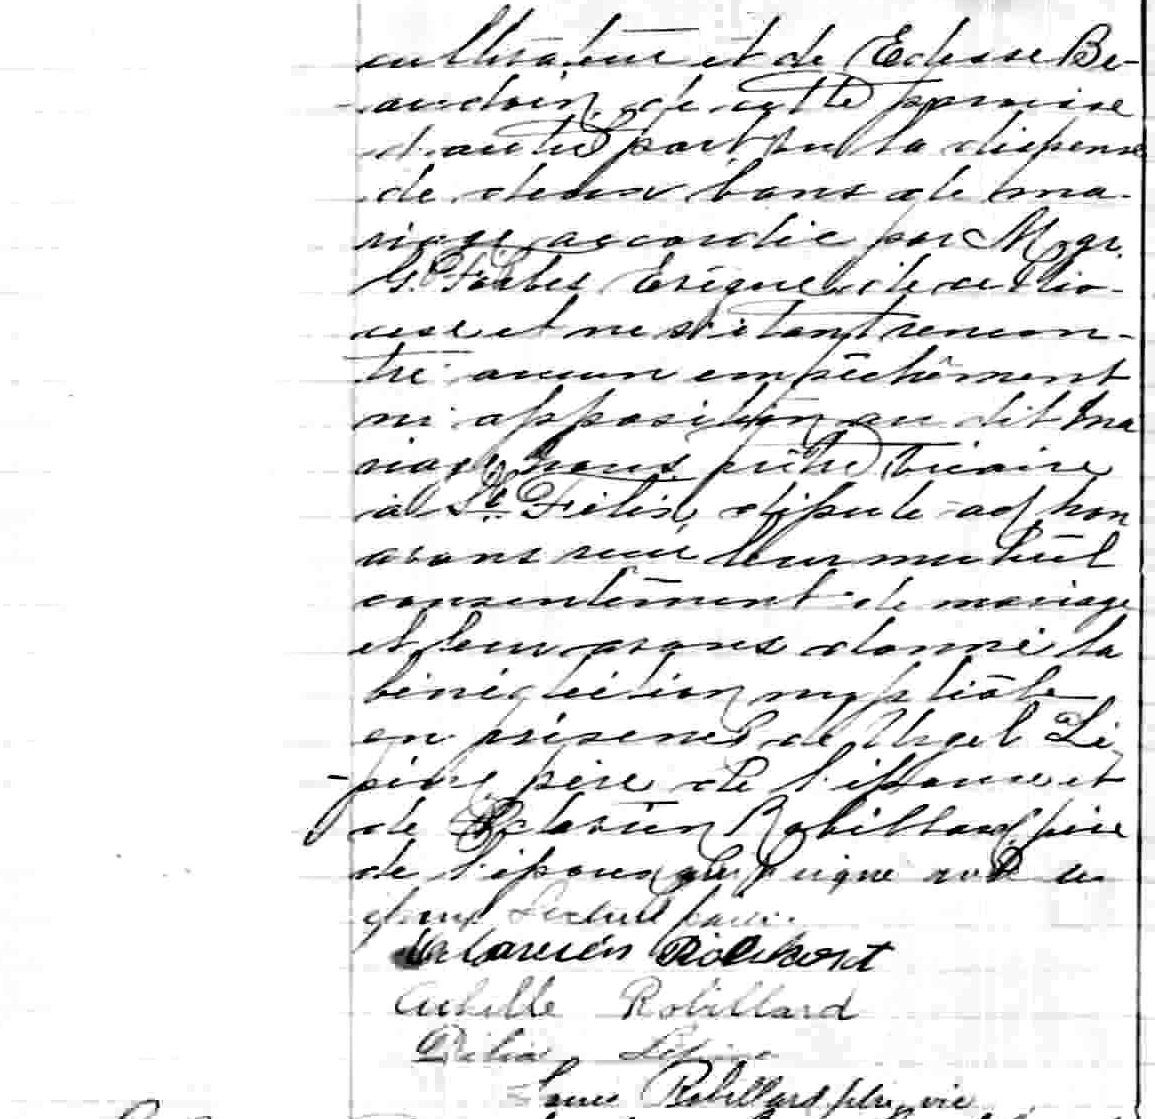 cultivateur et de Edesse Be-
audoin, de cette paroisse
d'autre part vu la dispense
de deux bans de ma-
riage accordée par Mgr.
G. Forbes Evêque de ce Dio-
cèse et ne s'étant rencon-
tré aucun empêchement
ni opposition au dit ma
riage nous prêtre vicaire
à St Félix, député ad hoc
avons reçu leur mutuel
consentement de mariage
et leur avons donné la
bénédiction nuptiale
en présence de Urgel Lé-
pine père de l'épouse et
de Octavien Robillard père
de l'époux qui signe avec
Lecture faite.
Robillard
Achille Robillard
Délia Lépine
Robillard ptre vic